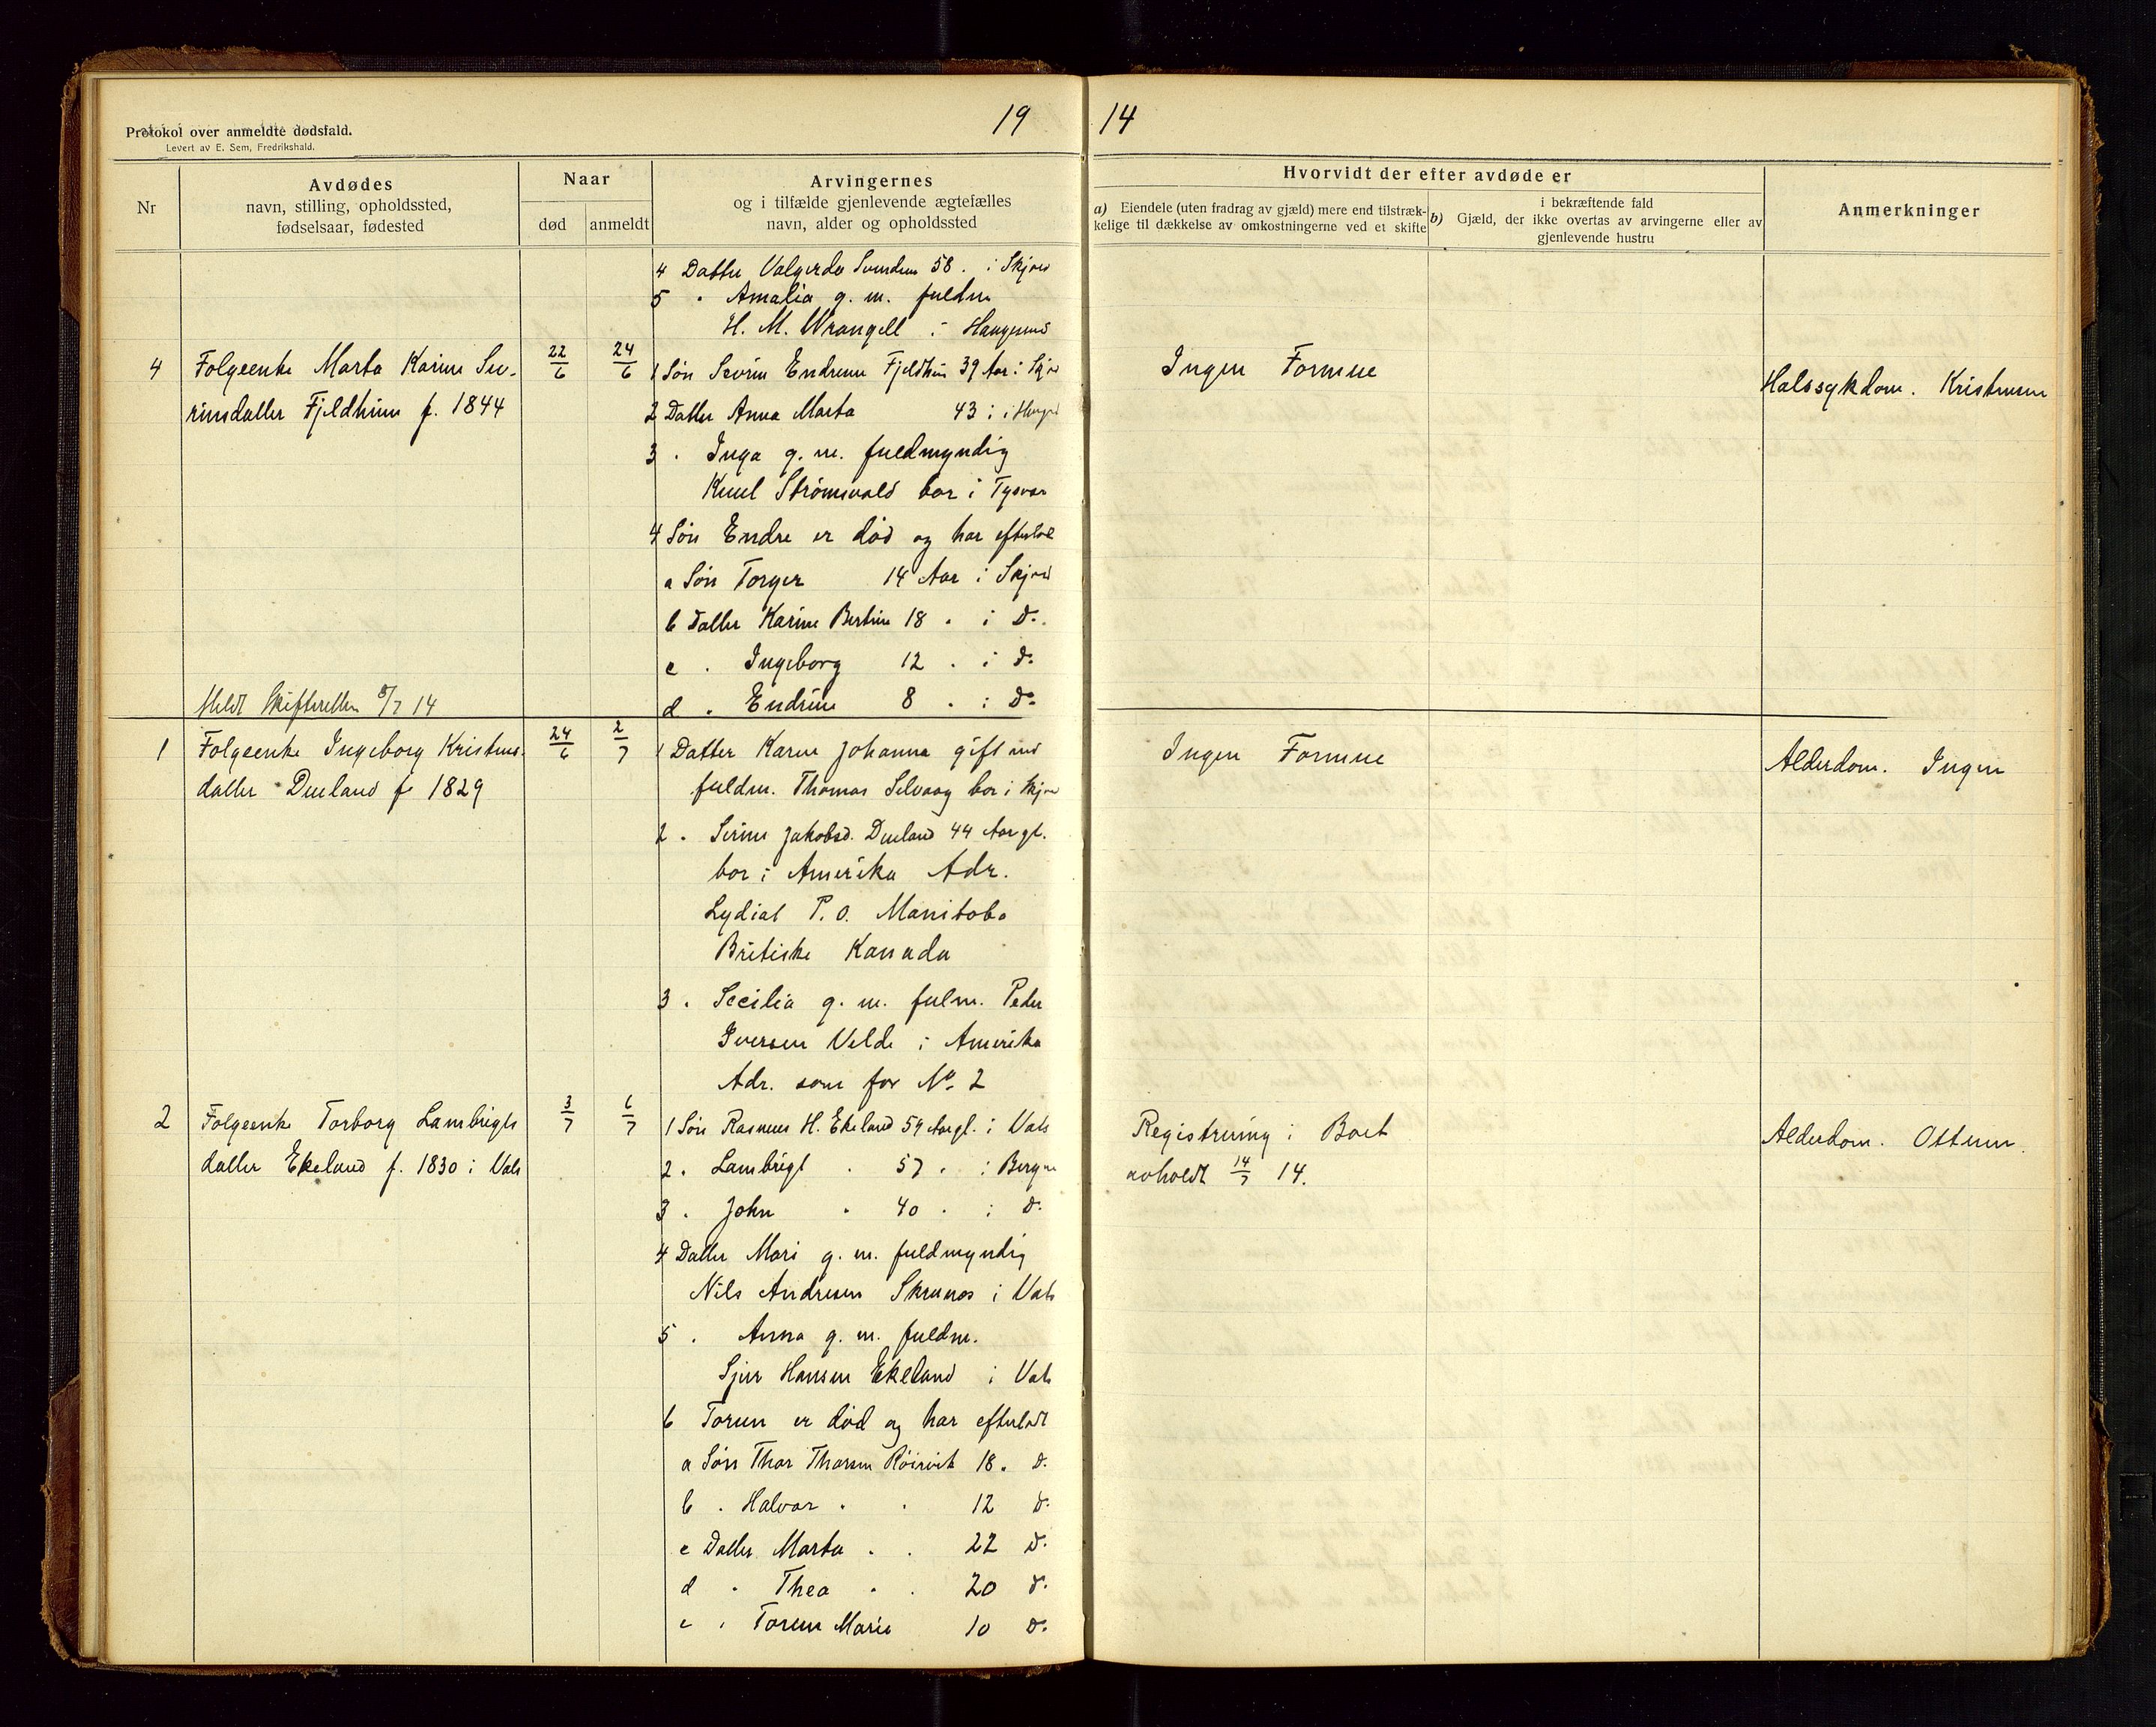 19 14
Protokol over anmeldte dødsfald.
Levert av E. Sem, Fredrikshald.
Nr
Avdødes
navn, stilling, opholdssted,
fødselsaar, fødested
Naar
død
anmeldt
Arvingernes
og i tilfælde gjenlevende ægtefælles
navn, alder og opholdssted
Hvorvidt der efter avdøde er
a) Eiendele (uten fradrag av gjæld) mere end tilstræk-
kelige til dækkelse av omkostningerne ved et skifte
i bekræftende fald
b) Gjæld, der ikke overtas av arvingerne eller av
gjenlevende hustru
Anmerkninger
4 Datter Valgerda 58. i Skjold
5 " Amalia g. m. fuldm
H. M. Wrangell i Haugesund
4 Folgeenke Marta Karine Sev-
rinsdatter Fjeldheim f. 1844
22/6 24/6
1 Søn Sevrin Endresen Fjeldheim 39 Aar i Skjold
2 Datter Anna Marta 43 " i Haugesd
3 " Inga g. m. fuldmyndig
Knut Strømsvold bor i Tysvær
4 Søn Endre er død og har efterladt
a Søn Torger 14 Aar i Skjold
b Datter Karine Bertine 18 " i Do.
c " Ingeborg 12 " i Do
d " Endrine 8 " i Do
Ingen Formue
Halssykdom. Kristensen
Meldt Skifteretten 8/7 14
1 Folgeenke Ingeborg Kristens-
datter Dueland f. 1829
24/6 2/7
1 Datter Karen Johanna gift med
fuldm. Thomas Selvaag bor i Skjold
2 " Serine Jakobsd. Dueland 44 Aar gl.
bor i Amerika Adr.
P. O. Manitoba
Britiske Kanada
3 " Secilia g. m. fulm. Peder
Iversen Velde i Amerika
Adr. som for No 2
Ingen Formue
Alderdom. Ingen
2 Folgeenke Torborg Lambrigts
datter Ekeland f. 1830 i Vats
3/7 6/7
1 Søn Rasmus H. Ekeland 59 Aar gl. i Vats
2 " Lambrigt " 57 " i Bergen
3 " John " 40 " i Do
4 Datter Mari g. m. fuldmyndig
Nils Andresen i Vats
5 " Anna g. m. fuldm.
Sjur Hansen Ekeland i Vats
6 Torun er død og har efterladt
a Søn Thor Thorsen Røirvik 18 " Do
b " Halvor " " 12 Do
c Datter Marta " " 22 Do
d " Thea " " 20 Do
e " Toren Marie 10 Do
Registrering i Boet
avholdt 14/7 14.
Alderdom. Ottesen.